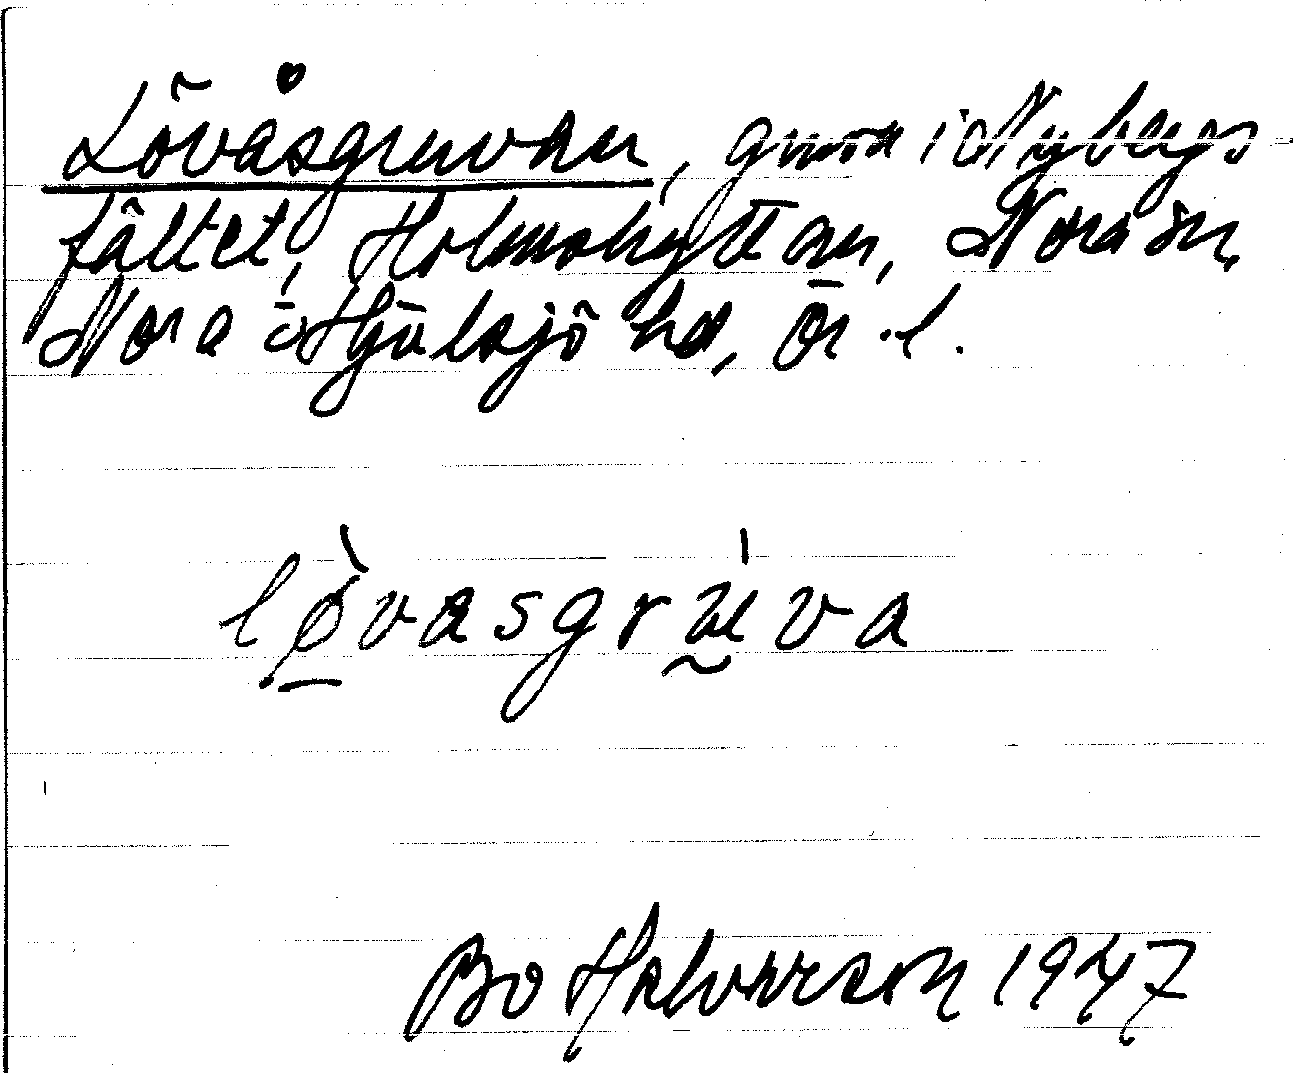 Lövåsgruvan, gruva i Nybergs
fältet, Holmshyttan, Nora sn,
Nora o Hjulsjö hd, Ör. l.
lø̀vasgrúva
Bo Halvarson 1947